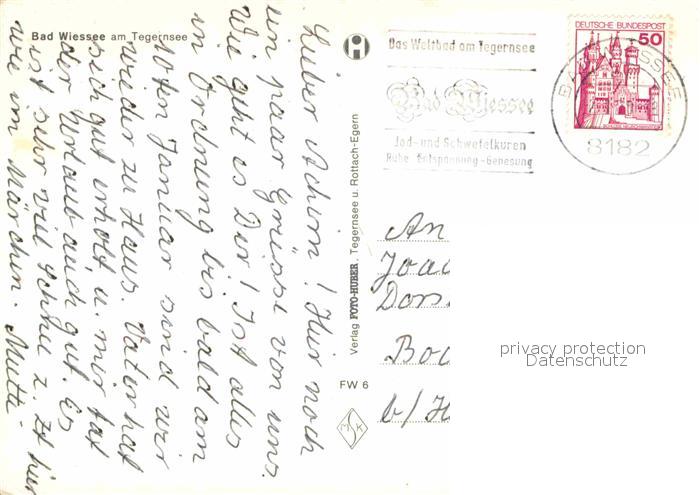 Bad Wiessee am Tegernsee
Lieber Achim! Hier noch
ein paar Grüsse von uns.
Wie geht es Dir! Ist alles
in Ordnung bis bald am
10ten Januar sind wir
wieder zu Haus. Vater hat
sich gut erholt u. mir tat
der Urlaub auch gut. Es
ist sehr viel Schnee z. Zt hier
wie im Märchen. Mutti
Verlag FOTO-HUBER, Tegernsee u. Rottach-Egern
FW 6
MSK
Das Weltbad am Tegernsee
Bad Wiessee
Jod- und Schwefelkuren
Ruhe - Entspannung - Genesung
DEUTSCHE BUNDESPOST
50
BAD WIESSEE
8182
An
Joac
Dors
Boc
b/H
privacy protection
Datenschutz